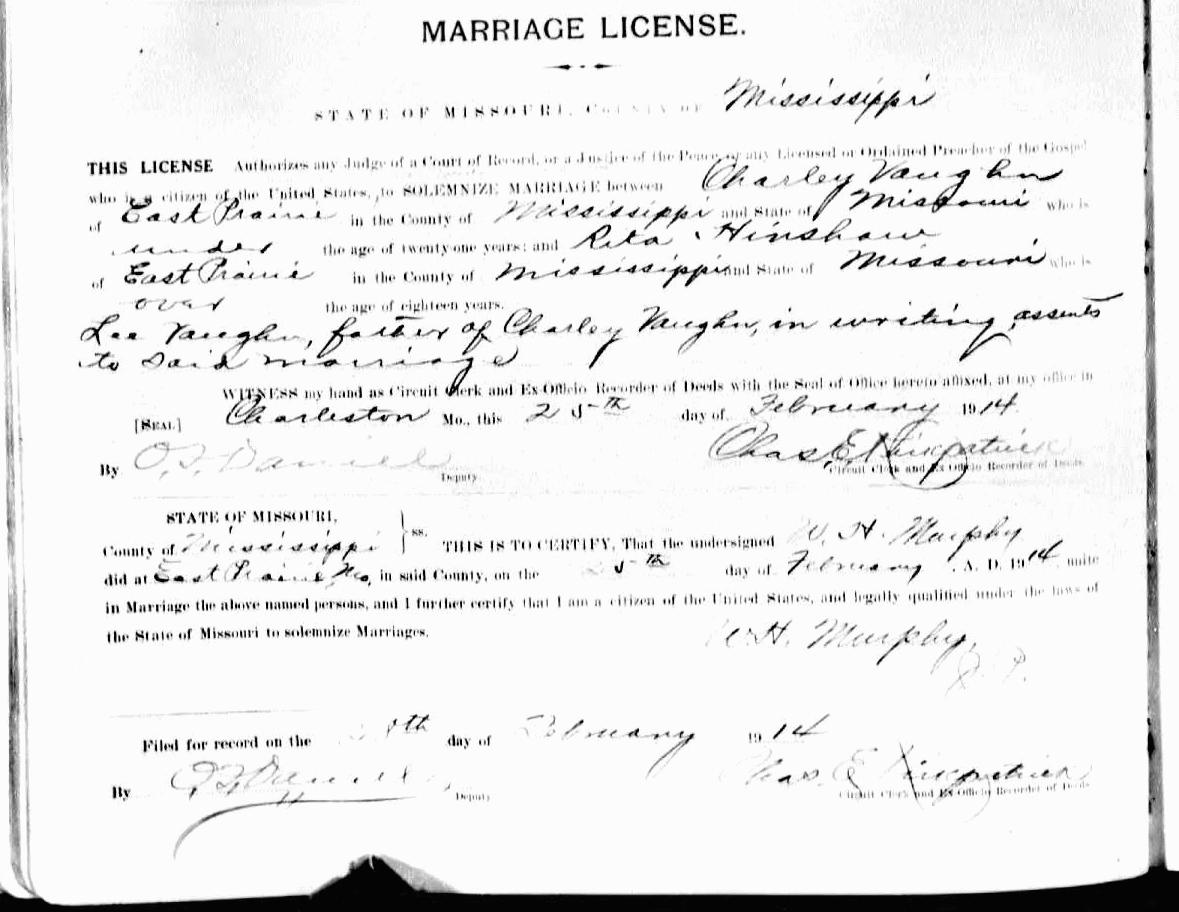 MARRIAGE LICENSE.
STATE OF MISSOURI, COUNTY OF Mississippi
THIS LICENSE Authorizes any Judge of a Court of Record, or a Justice of the Peace, or any Licensed or Ordained Preacher of the Gospel
who is a citizen of the United States, to SOLEMNIZE MARRIAGE between Charley Vaughn
of East Prairie in the County of Mississippi and State of Missouri who is
under the age of twenty-one years; and Rita Hinshaw
of East Prairie in the County of Mississippi and State of Missouri who is
over the age of eighteen years.
Lee Vaughn, father of Charley Vaughn, in writing, assents
to said marriage
WITNESS my hand as Circuit Clerk and Ex-Officio Recorder of Deeds with the Seal of Office hereto affixed, at my office in
[SEAL] Charleston Mo., this 25th day of February 1914.
By O.F. Daniel Deputy Chas. E. Kirkpatrick
Circuit Clerk and Ex Officio Recorder of Deeds
STATE OF MISSOURI,
County of Mississippi } ss. THIS IS TO CERTIFY, That the undersigned W. H. Murphy
did at East Prairie, Mo, in said County, on the 25th day of February, A. D. 1914 unite
in Marriage the above named persons, and I further certify that I am a citizen of the United States, and legally qualified under the laws of
the State of Missouri to solemnize Marriages. W. H. Murphy,
J. P.
Filed for record on the 28th day of February 1914
By O.F. Daniel, Deputy Chas. E. Kirkpatrick
Circuit Clerk and Ex-Officio Recorder of Deeds